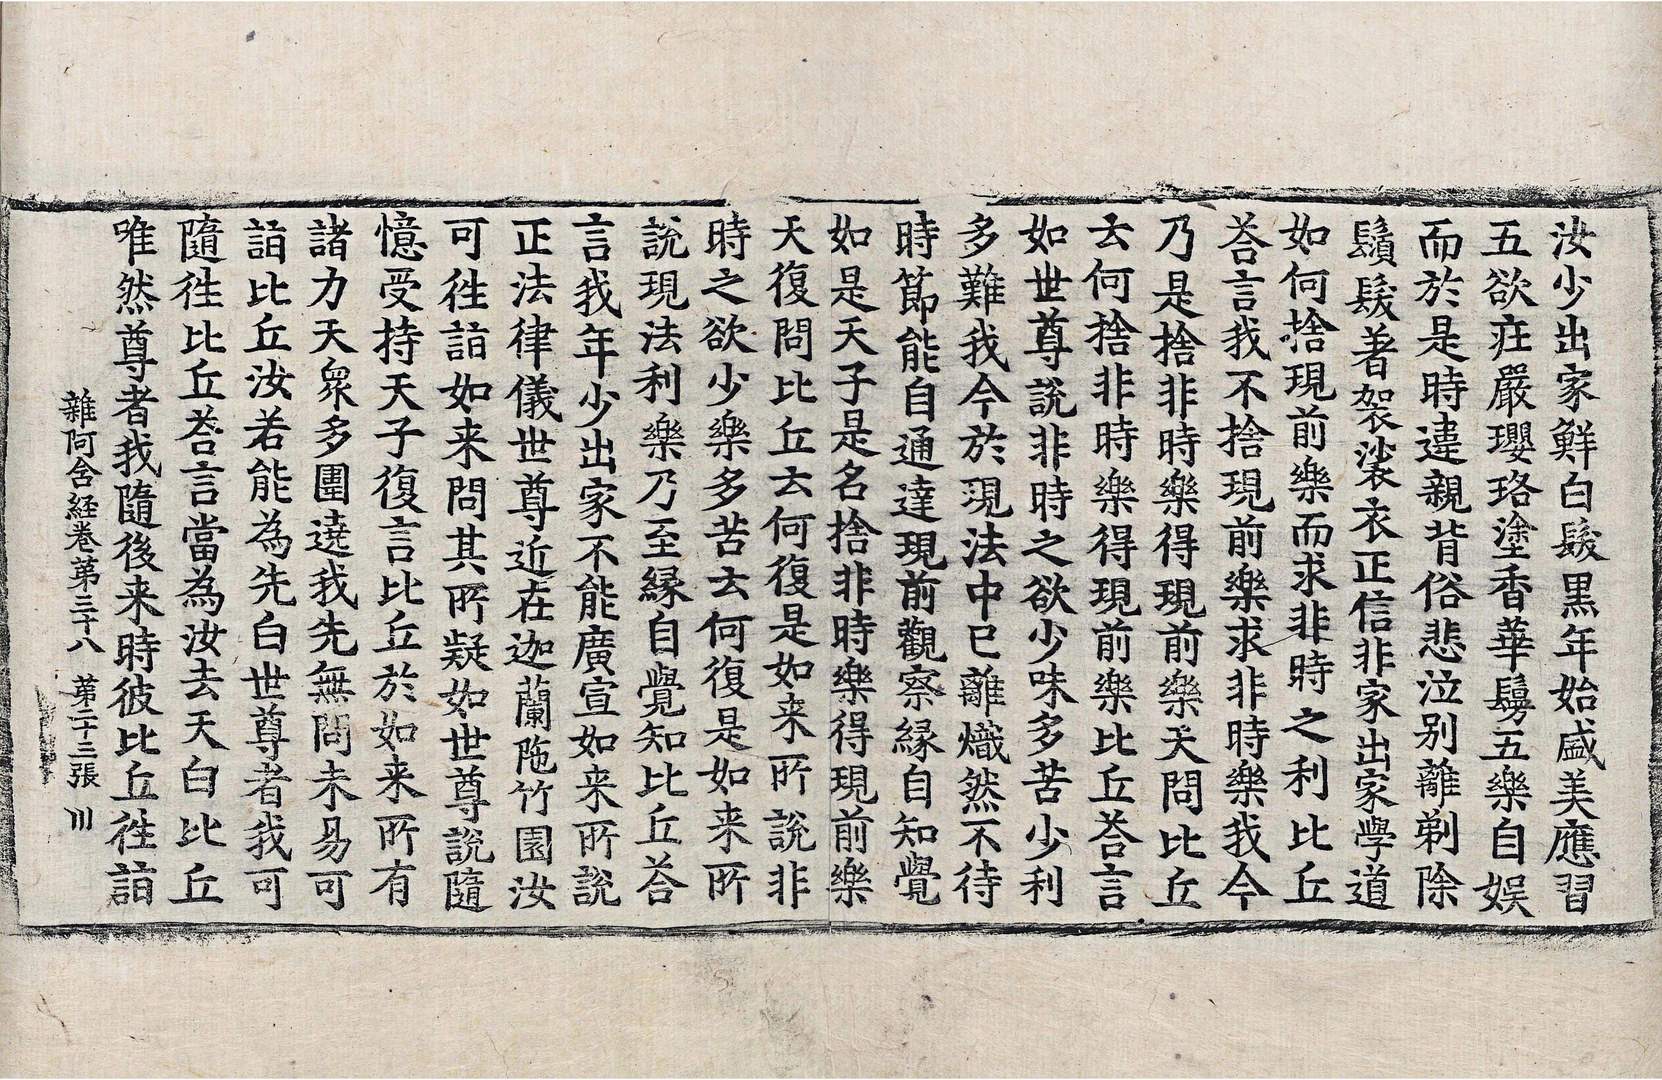 汝少出家鮮白髮黒年始盛美應習
五欲疘嚴瓔珞塗香華鬘五樂自娱
而於是時違親背俗悲泣别離剃除
鬚髮著袈裟衣正信非家出家學道
如何捨現前樂而求非時之利比丘
荅言我不捨現前樂求非時樂我今
乃是捨非時樂得現前樂天問比丘
去何捨非時樂得現前樂比丘荅言
如世尊說非時之欲少味多苦少利
多難我今於現法中已離熾然不待
時節能自通達現前觀察縁自知覺
如是天子是名捨非時樂得現前樂
天復問比丘去何復是如来所說非
時之欲少樂多苦去何復是如来所
說現法利樂乃至縁自覺知比丘荅
言我年少出家不能廣宣如来所說
正法律儀世尊近在迦蘭陁竹園汝
可徃詣如来問其所疑如世尊說隨
憶受持天子復言比丘於如来所有
諸力天衆多圍遶我先無問未易可
詣比丘汝若能為先白世尊者我可
隨徃比丘荅言當為汝去天白比丘
唯然尊者我隨後来時彼比丘徃詣
雜阿含経卷第三十八 第二十三張 川